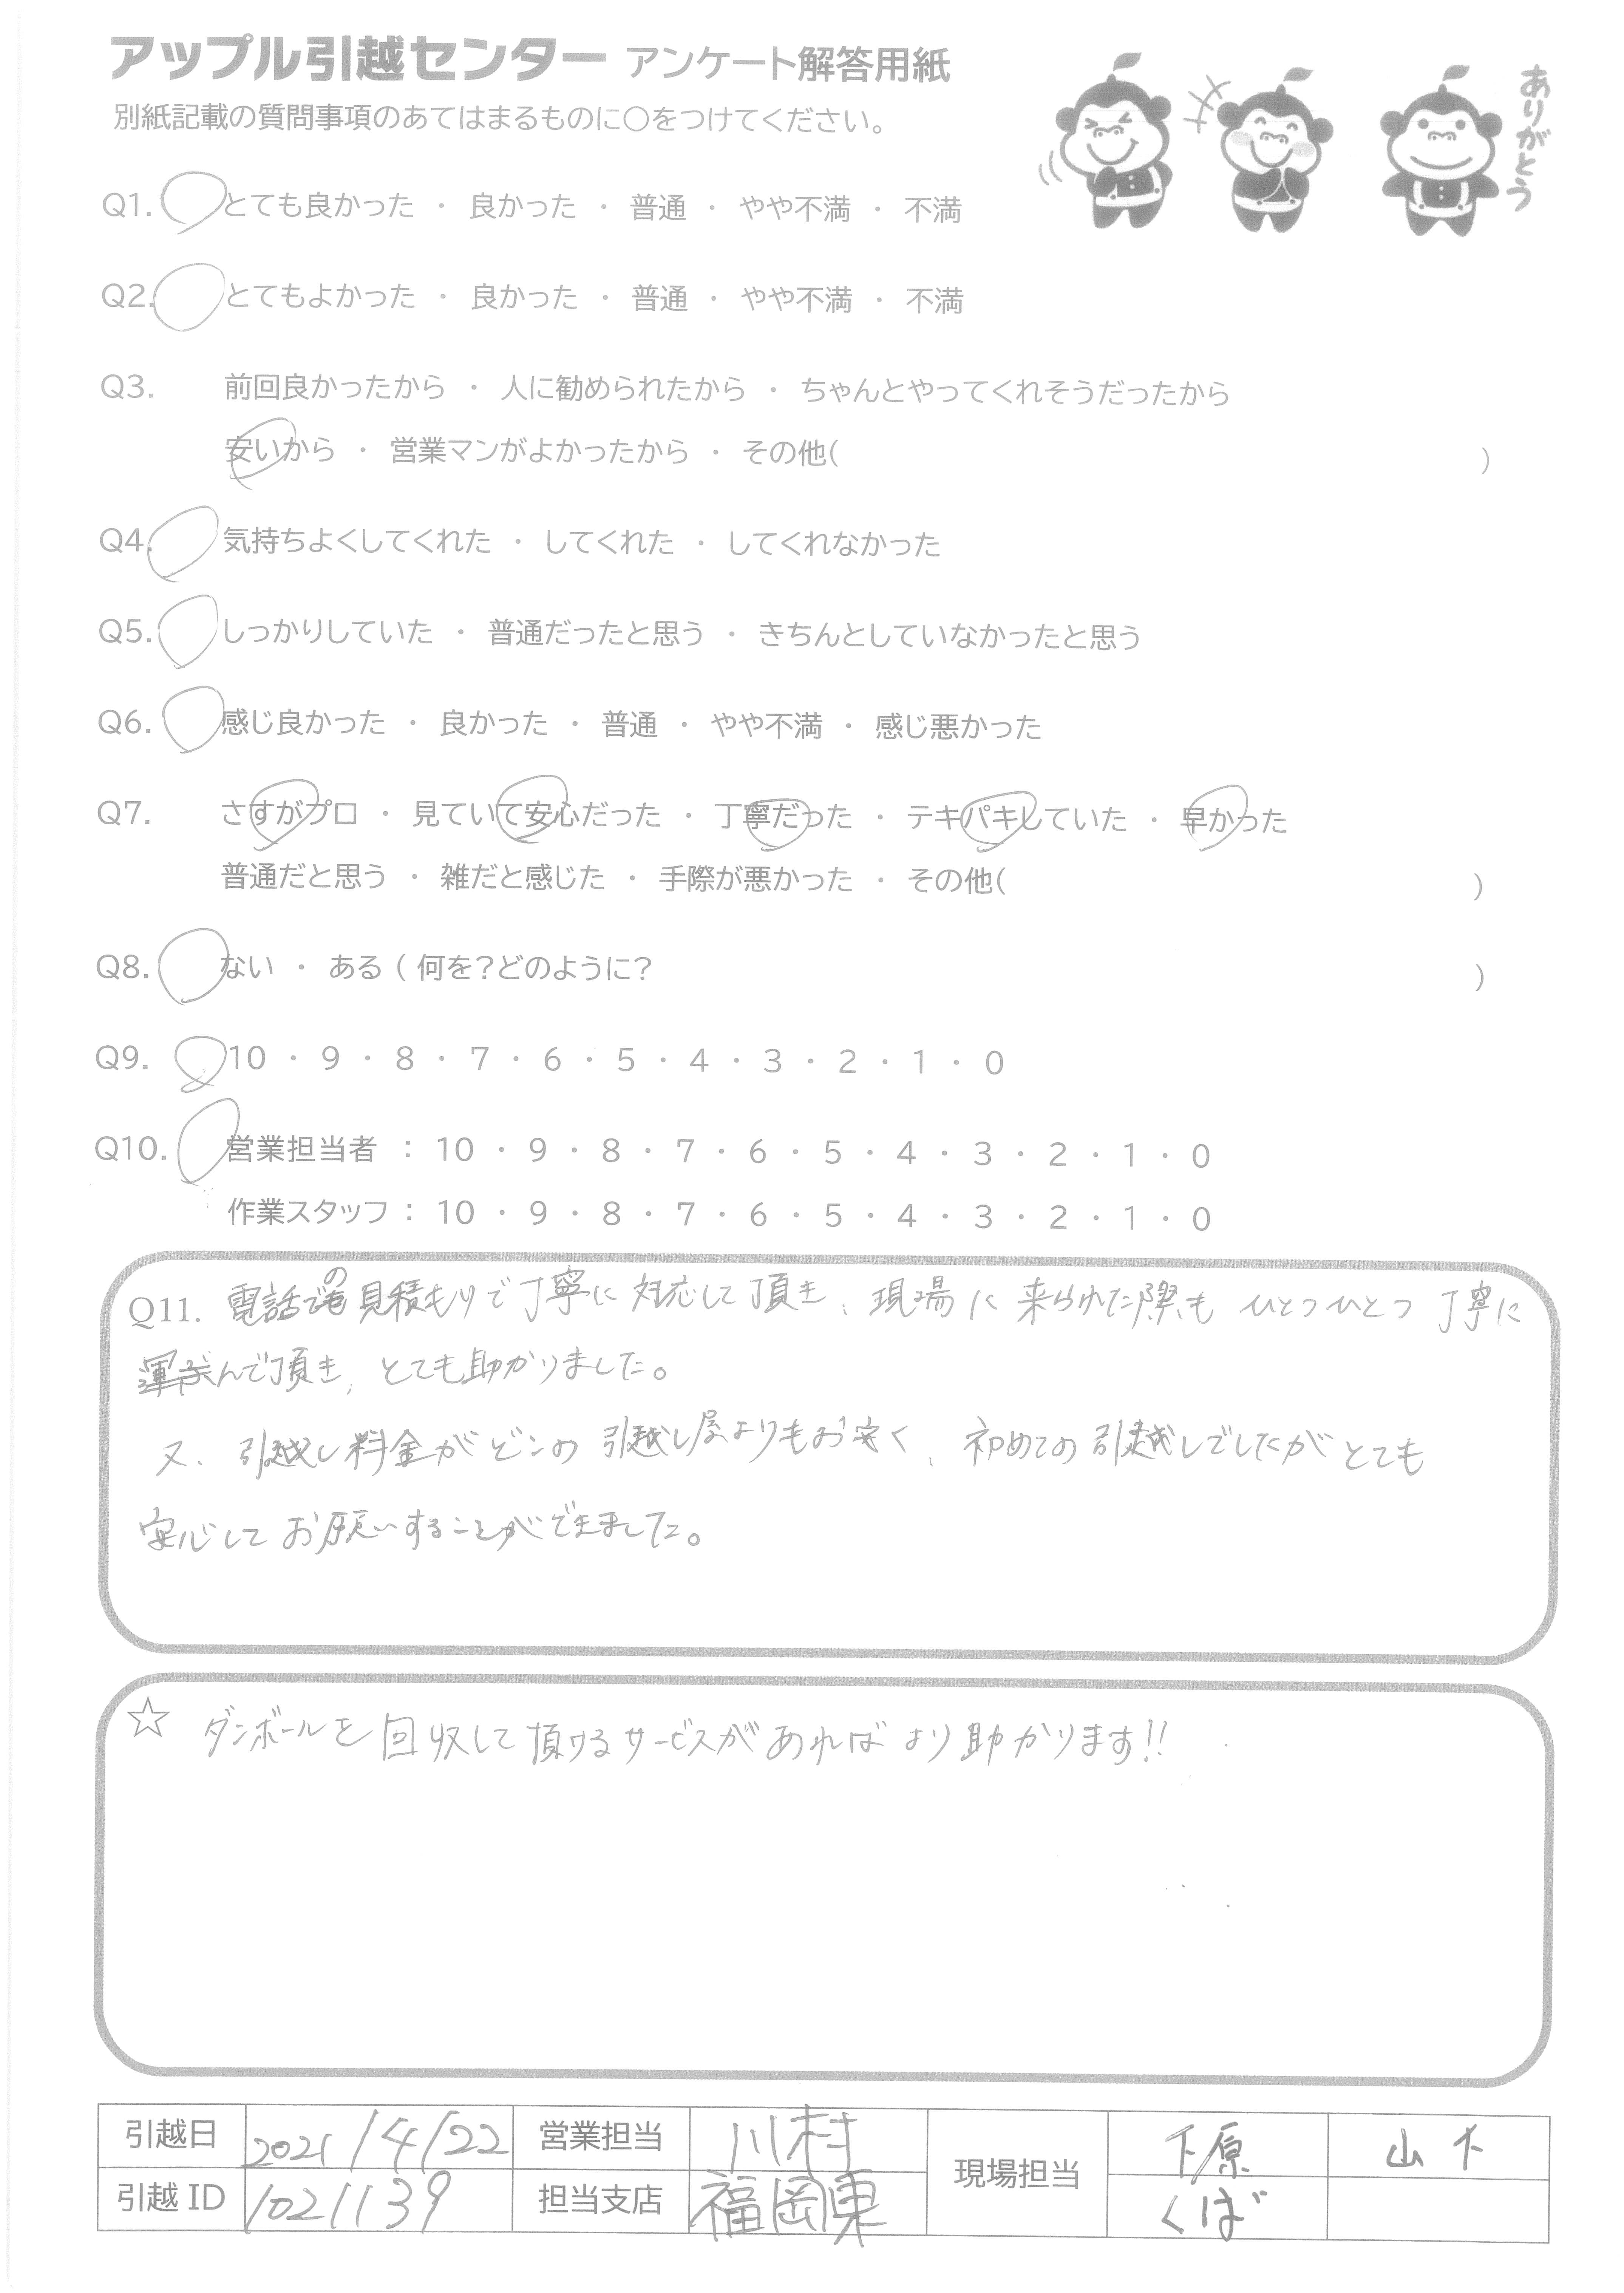 アップル引越センター アンケート解答用紙
別紙記載の質問事項のあてはまるものに○をつけてください。
ありがとう
Q1. とても良かった ・ 良かった ・ 普通 ・ やや不満 ・ 不満
Q2. とてもよかった ・ 良かった ・ 普通 ・ やや不満 ・ 不満
Q3. 前回良かったから ・ 人に勧められたから ・ ちゃんとやってくれそうだったから
安いから ・ 営業マンがよかったから ・ その他( )
Q4. 気持ちよくしてくれた ・ してくれた ・ してくれなかった
Q5. しっかりしていた ・ 普通だったと思う ・ きちんとしていなかったと思う
Q6. 感じ良かった ・ 良かった ・ 普通 ・ やや不満 ・ 感じ悪かった
Q7. さすがプロ ・ 見ていて安心だった ・ 丁寧だった ・ テキパキしていた ・ 早かった
普通だと思う ・ 雑だと感じた ・ 手際が悪かった ・ その他( )
Q8. ない ・ ある ( 何を?どのように? )
Q9. 10 ・ 9 ・ 8 ・ 7 ・ 6 ・ 5 ・ 4 ・ 3 ・ 2 ・ 1 ・ 0
Q10. 営業担当者 : 10 ・ 9 ・ 8 ・ 7 ・ 6 ・ 5 ・ 4 ・ 3 ・ 2 ・ 1 ・ 0
作業スタッフ : 10 ・ 9 ・ 8 ・ 7 ・ 6 ・ 5 ・ 4 ・ 3 ・ 2 ・ 1 ・ 0
Q11. 電話での見積もりで丁寧に対応して頂き、現場に来られた際も ひとつひとつ 丁寧に
運んで頂き、とても助かりました。
又、引越し料金がどこの引越し屋よりもお安く、初めての引越しでしたがとても
安心してお願いすることができました。
☆ ダンボールを回収して頂けるサービスがあればより助かります!!
引越日 2021/4/22 営業担当 川村 現場担当 下原 山下
引越ID 1021139 担当支店 福岡東 くば